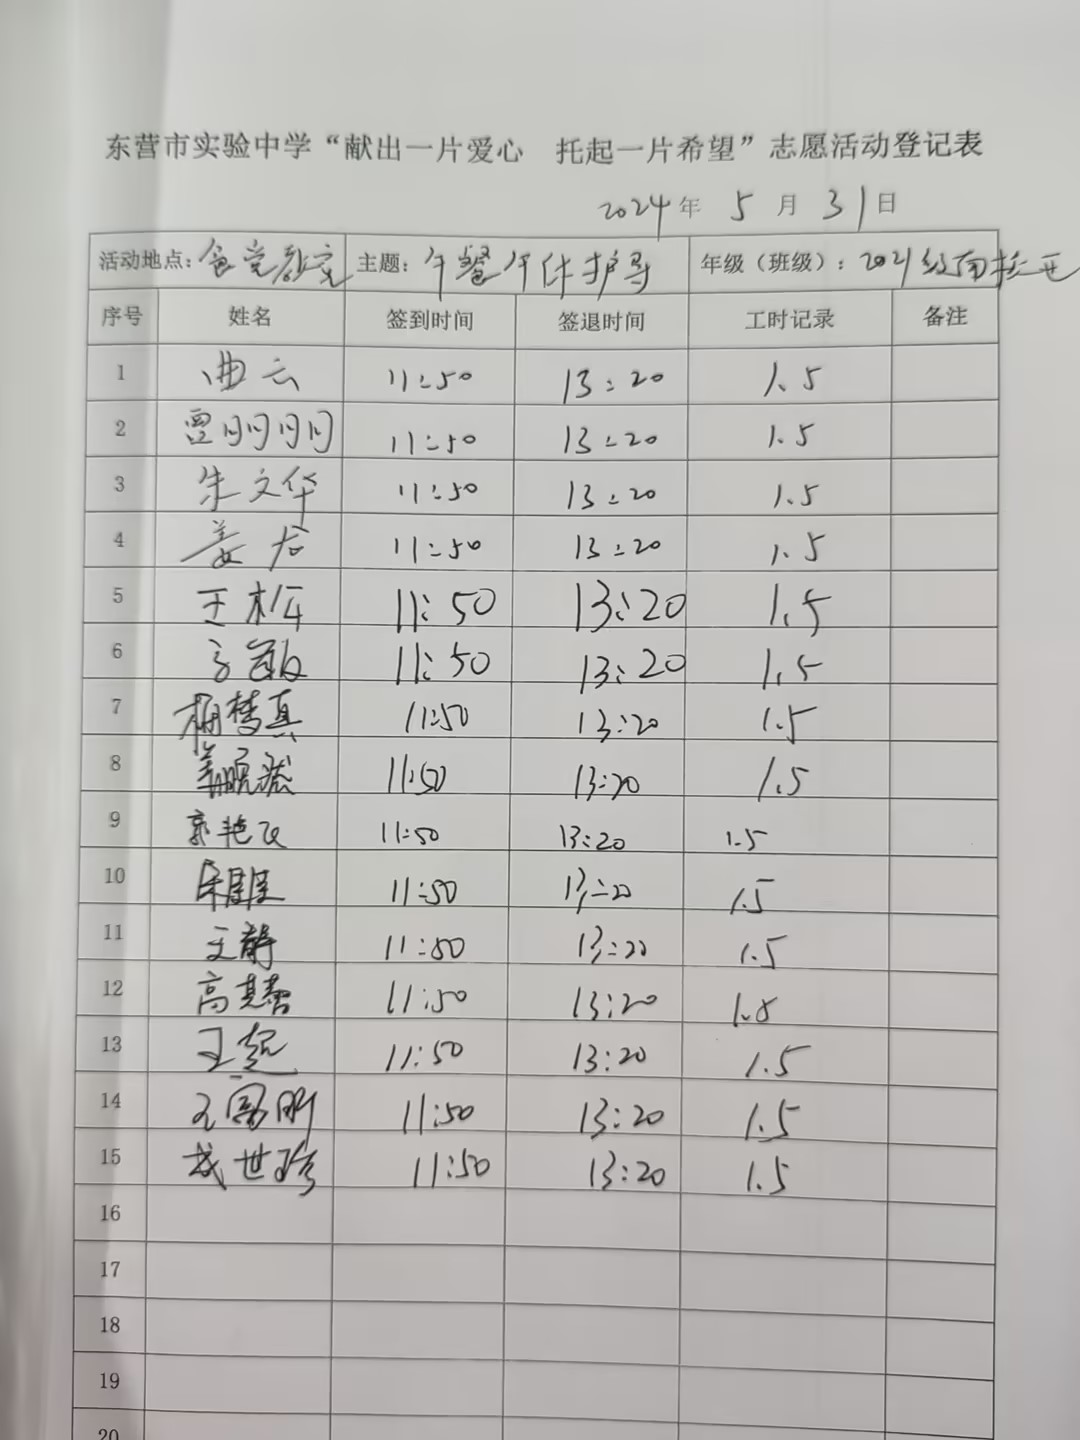 东营市实验中学“献出一片爱心 托起一片希望”志愿活动登记表
2024年 5月 31日
活动地点：食堂教室 主题：午餐午休护导 年级（班级）：2021级
序号 姓名 签到时间 签退时间 工时记录 备注
1 曲云 11:50 13:20 1.5
2 贾明明 11:50 13:20 1.5
3 朱文华 11:50 13:20 1.5
4 姜 11:50 13:20 1.5
5 王 11:50 13:20 1.5
6 11:50 13:20 1.5
7 梦真 11:50 13:20 1.5
8 11:50 13:20 1.5
9 郭艳飞 11:50 13:20 1.5
10 11:50 13:20 1.5
11 王静 11:50 13:20 1.5
12 高 11:50 13:20 1.5
13 王超 11:50 13:20 1.5
14 王国明 11:50 13:20 1.5
15 世珍 11:50 13:20 1.5
16
17
18
19
20